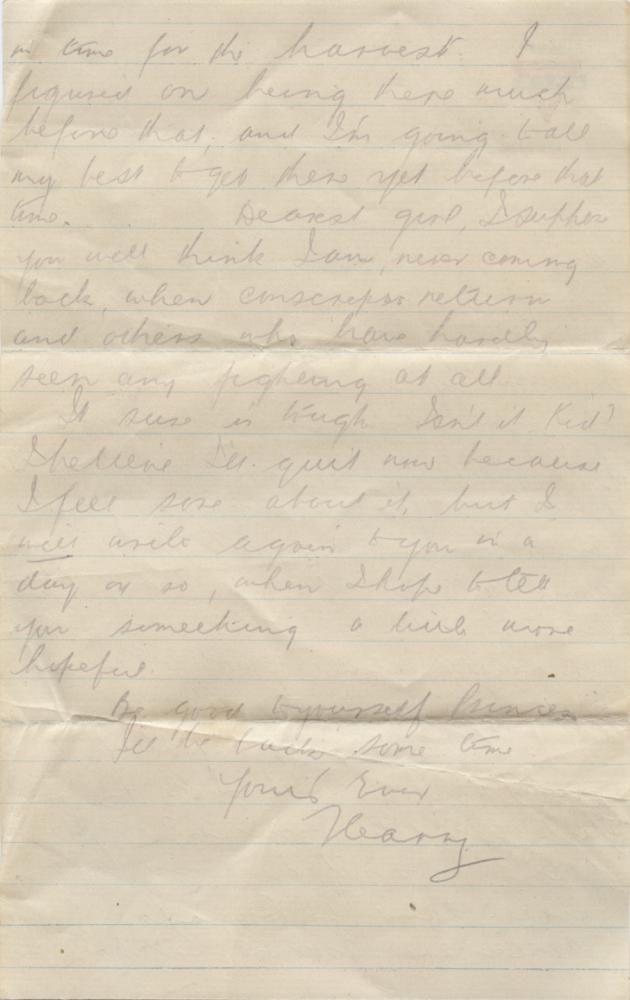 in time for the harvest. I
figured on being here much
before that, and I'm going to all
my best to get there yet before that
time. Dearest girl, I suppose
you will think I am never coming
back, when conscripts return
and others who have hardly
seen any fighting at all.
It sure is tough Isn't it Kid?
I believe I'll quit now because
I feel sore about it, but I
will write again to you in a
day or so, when I hope to tell
you something a little more
hopeful.
Be good to yourself Princess
I'll be back some time.
Yours Ever
Harry